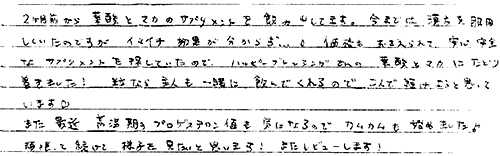 2ヶ月前から 葉酸とマカのサプリメントを飲み出してます。今までに 漢方を服用
していたのですが イマイチ 効果が分からず...。価格もおさえられて、安心安全
なサプリメントを探していたので、ハッピーブレッシングさんの 葉酸とマカにたどり
着きました! 粒なら主人も一緒に 飲んでくれるので 二人で続けようと思って
います♡
また最近 高温期のプロゲステロン値も気になるので カムカムも始めました♪
頑張って続けて 様子を見たいと思います! またレビューします!